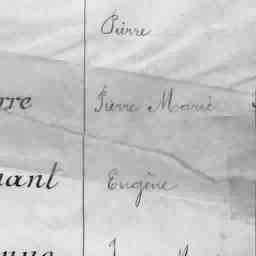 Pierre
rre Pierre Marie
nant Eugène